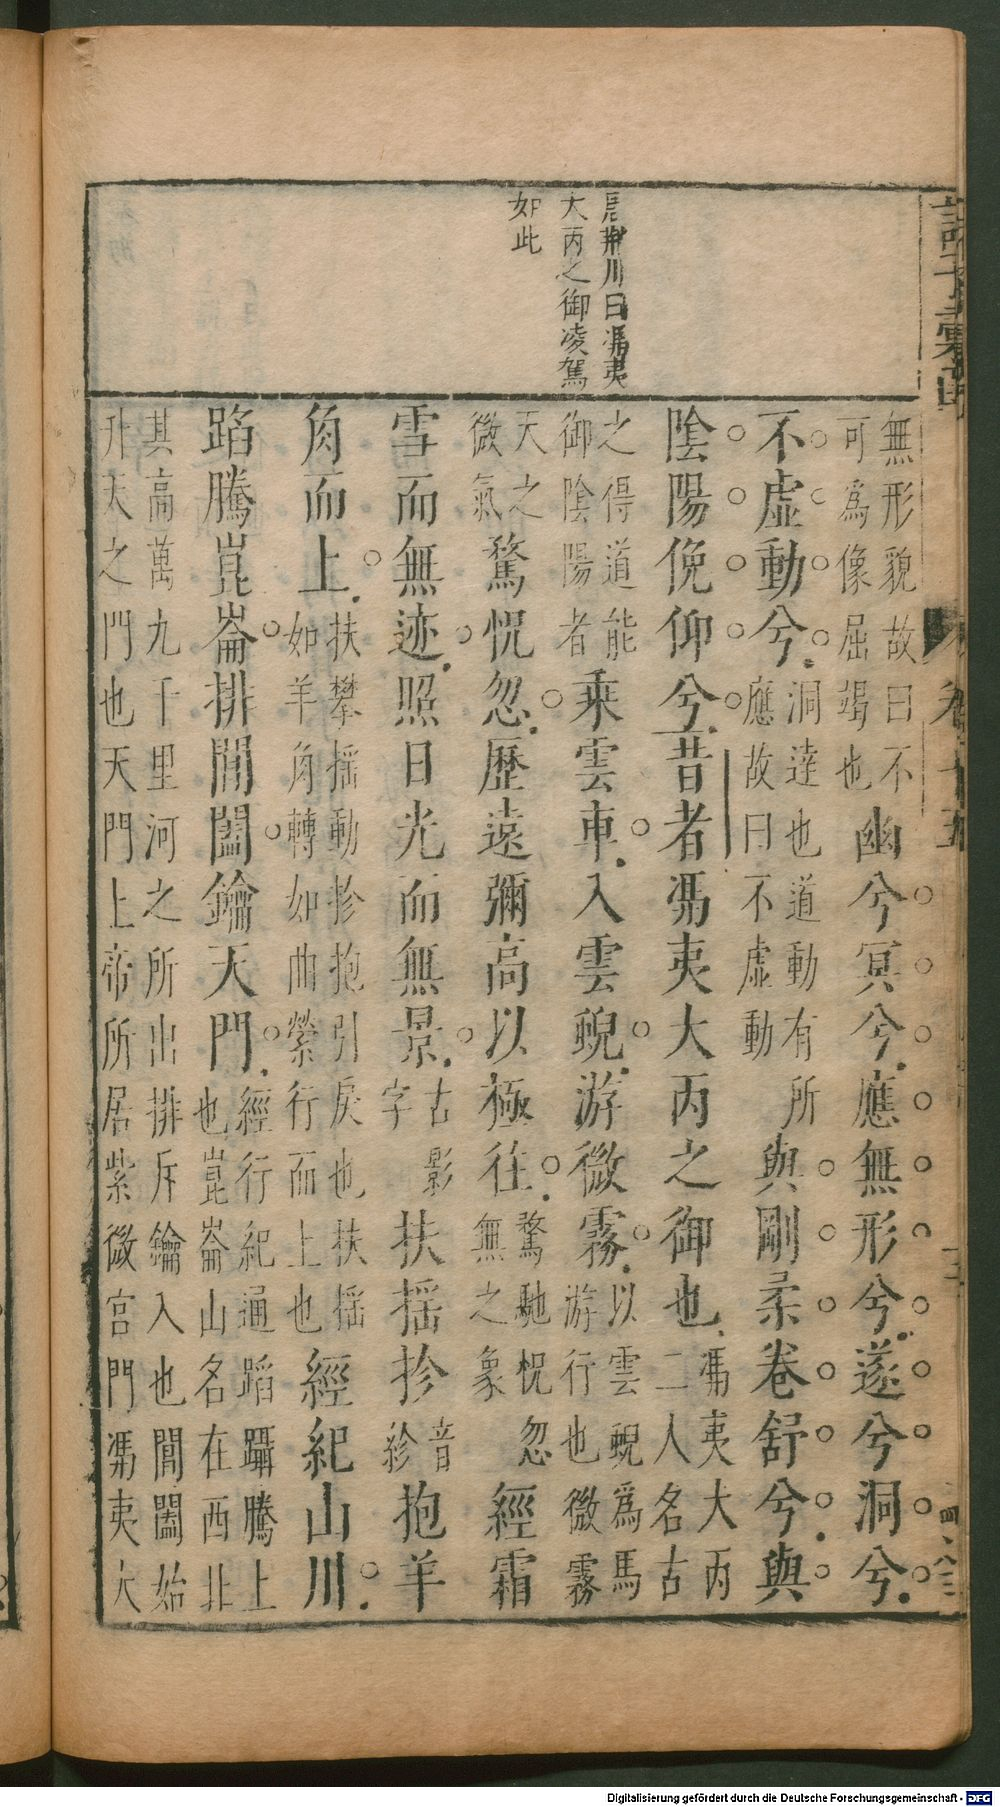 唐荊川曰馮夷
大丙之御凌駕
如此
無形貌故曰不
可爲像屈竭也
幽兮冥兮應無形兮遂兮洞兮
不虛動兮
洞達也道動有所
應故曰不虛動
與剛柔卷舒兮與
陰陽俛仰兮昔者馮夷大丙之御也
馮夷大丙
二人名古
之得道能
御陰陽者
乘雲車入雲蜺游微霧
以雲蜺爲馬
游行也微霧
天之
微氣
騖怳忽歷遠彌高以極往
騖馳怳忽
無之象
經霜
雪而無迹照日光而無景
古影
字
扶搖抮
音
紾
抱羊
角而上
扶攀搖動抮抱引戾也扶搖
如羊角轉如曲縈行而上也
經紀山川
蹈騰崑崙排閶闔鑰天門
經行紀通蹈躡騰上
也崑崙山名在西北
其高萬九千里河之所出排斥鑰入也閶闔始
升天之門也天門上帝所居紫微宮門馮夷大
Digitalisierung gefördert durch die Deutsche Forschungsgemeinschaft - DFG